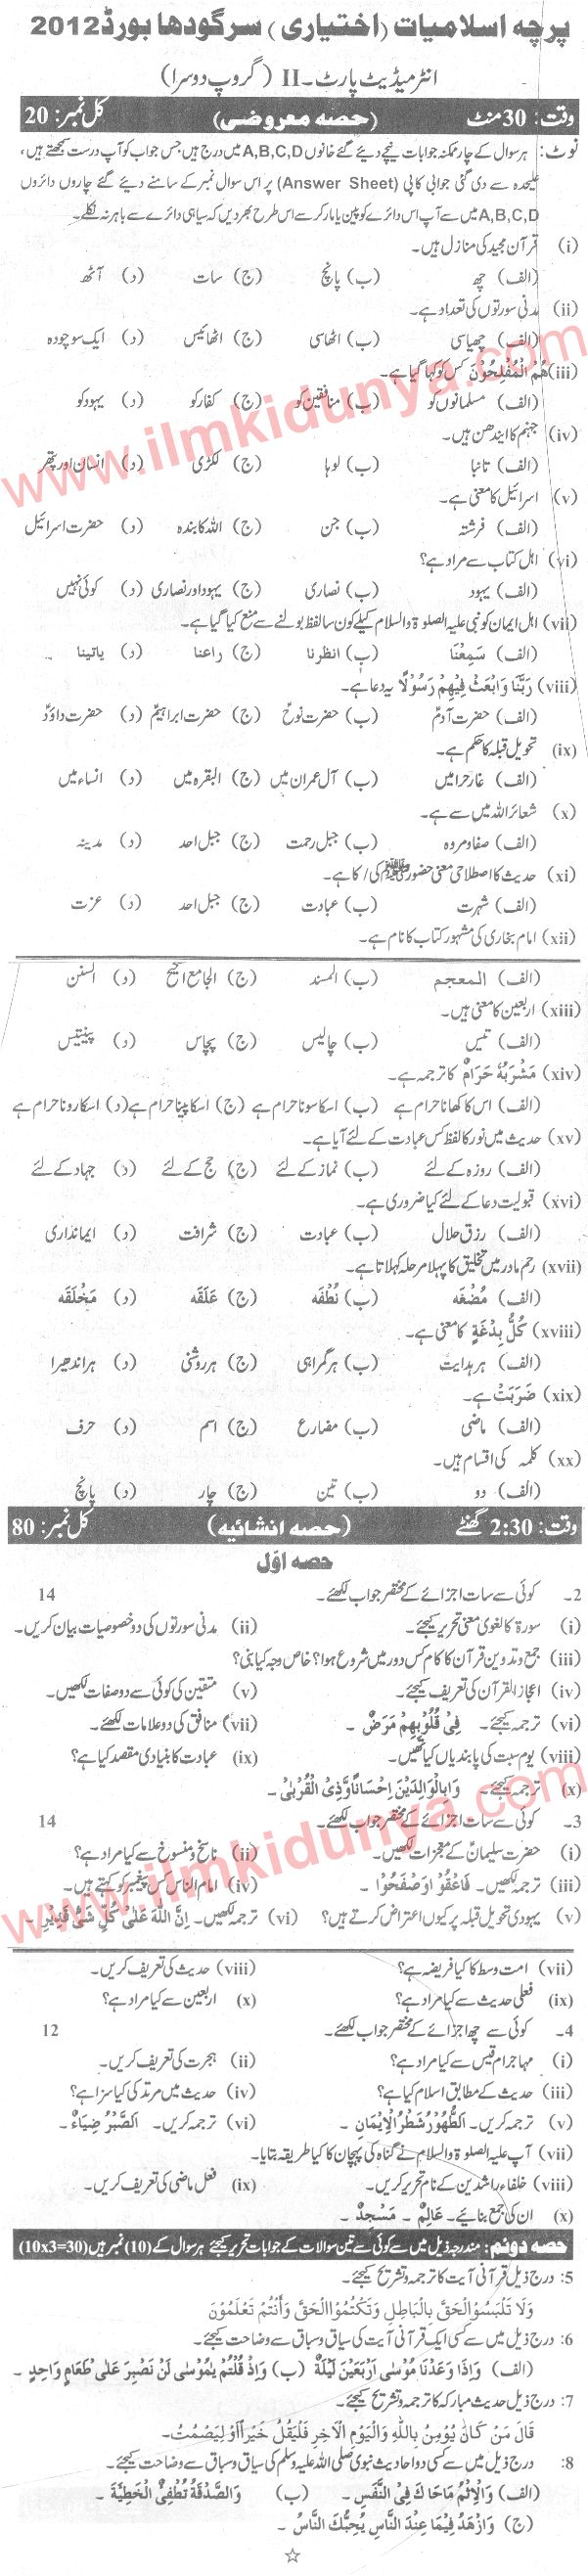 پرچہ اسلامیات (اختیاری) سرگودھا بورڈ 2012
انٹرمیڈیٹ پارٹ۔ II (گروپ دوسرا)
وقت: 30 منٹ (حصہ معروضی) کل نمبر: 20
نوٹ: ہر سوال کے چار ممکنہ جوابات نیچے دیئے گئے خانوں A,B,C,D میں درج ہیں جس جواب کو آپ درست سمجھتے ہیں،
علیحدہ سے دی گئی جوابی کاپی (Answer Sheet) پر اس سوال نمبر کے سامنے دیئے گئے چاروں دائروں
A,B,C,D میں سے آپ اس دائرے کو پین یا مارکر سے اس طرح بھر دیں کہ سیاہی دائرے سے باہر نہ نکلے۔
(i) قرآن مجید کی منازل ہیں۔
(الف) چھ (ب) پانچ (ج) سات (د) آٹھ
(ii) مدنی سورتوں کی تعداد ہے۔
(الف) چھیاسی (ب) اٹھاسی (ج) اٹھائیس (د) ایک سو چودہ
(iii) هُمُ الْمُفْلِحُوْنَ کس کو کہا گیا ہے۔
(الف) مسلمانوں کو (ب) منافقین کو (ج) کفار کو (د) یہود کو
(iv) جہنم کا ایندھن ہیں۔
(الف) تانبا (ب) لوہا (ج) لکڑی (د) انسان اور پتھر
(v) اسرائیل کا معنی ہے۔
(الف) فرشتہ (ب) جن (ج) اللہ کا بندہ (د) حضرت اسرائیل
(vi) اھل کتاب سے مراد ہے؟
(الف) یہود (ب) نصاری (ج) یہود اور نصاری (د) کوئی نہیں
(vii) اھل ایمان کو نبی علیہ الصلوۃ والسلام کیلئے کون سا لفظ بولنے سے منع کیا گیا ہے۔
(الف) سَمِعْنَا (ب) انظرنا (ج) راعنا (د) یاتینا
(viii) رَبَّنَا وَابْعَثْ فِيْهِمْ رَسُوْلًا یہ دعا ہے۔
(الف) حضرت آدمؑ (ب) حضرت نوحؑ (ج) حضرت ابراہیمؑ (د) حضرت داؤدؑ
(ix) تحویل قبلہ کا حکم ہے۔
(الف) غار حرا میں (ب) آل عمران میں (ج) البقرہ میں (د) النساء میں
(x) شعائر اللہ میں سے ہے۔
(الف) صفا و مروہ (ب) جبل رحمت (ج) جبل احد (د) مدینہ
(xi) حدیث کا اصطلاحی معنی حضور ﷺ کی / کا ہے۔
(الف) شہرت (ب) عبادت (ج) جبل احد (د) عزت
(xii) امام بخاری کی مشہور کتاب کا نام ہے۔
(الف) المعجم (ب) المسند (ج) الجامع الصحیح (د) السنن
(xiii) اربعین کا معنی ہیں۔
(الف) تیس (ب) چالیس (ج) پچاس (د) پینتیس
(xiv) مَشْرَبُهٗ حَرَامٌ کا ترجمہ ہے۔
(الف) اس کا کھانا حرام ہے (ب) اسکا سونا حرام ہے (ج) اسکا پینا حرام ہے (د) اسکا رونا حرام ہے
(xv) حدیث میں نور کا لفظ کس عبادت کے لئے آیا ہے۔
(الف) روزہ کے لئے (ب) نماز کے لئے (ج) حج کے لئے (د) جہاد کے لئے
(xvi) قبولیت دعا کے لئے کیا ضروری ہے۔
(الف) رزق حلال (ب) عبادت (ج) شرافت (د) ایمانداری
(xvii) رحم مادر میں تخلیق کا پہلا مرحلہ کہلاتا ہے۔
(الف) مُضْغَه (ب) نُطْفَه (ج) عَلَقَه (د) مَخْلَقَه
(xviii) كُلُّ بِدْعَةٍ کا معنی ہے۔
(الف) ہر ہدایت (ب) ہر گمراہی (ج) ہر روشنی (د) ہر اندھیرا
(xix) ضَرَبَتْ ہے۔
(الف) ماضی (ب) مضارع (ج) اسم (د) حرف
(xx) کلمہ کی اقسام ہیں۔
(الف) دو (ب) تین (ج) چار (د) پانچ
وقت: 2:30 گھنٹے (حصہ انشائیہ) کل نمبر: 80
حصہ اوّل
2۔ کوئی سے سات اجزائے کے مختصر جواب لکھئے۔ 14
(i) سورۃ کا لغوی معنی تحریر کیجئے۔ (ii) مدنی سورتوں کی دو خصوصیات بیان کریں۔
(iii) جمع و تدوین قرآن کا کام کس دور میں شروع ہوا؟ خاص وجہ کیا بنی؟
(iv) اعجاز القرآن کی تعریف کیجئے۔ (v) متقین کی کوئی سے دو صفات لکھیں۔
(vi) ترجمہ کیجئے۔ فِیْ قُلُوْبِهِمْ مَرَضٌ ۔ (vii) منافق کی دو علامات لکھئے۔
(viii) یوم سبت کی پابندیاں کیا تھیں۔ (ix) عبادت کا بنیادی مقصد کیا ہے؟
(x) ترجمہ کیجئے۔ وَبِالْوَالِدَيْنِ اِحْسَانًا وَّذِی الْقُرْبٰى ۔
3۔ کوئی سے سات اجزائے کے مختصر جواب لکھئے۔ 14
(i) حضرت سلیمانؑ کے معجزات لکھیں۔ (ii) ناسخ و منسوخ سے کیا مراد ہے؟
(iii) ترجمہ لکھیں۔ فَاعْفُوْا وَصْفَحُوْا ۔ (iv) امام الناس کس پیغمبر کو کہتے ہیں۔
(v) یہودی تحویل قبلہ پر کیوں اعتراض کرتے ہیں؟ (vi) ترجمہ لکھیں۔ اِنَّ اللّٰهَ عَلٰى كُلِّ شَیْءٍ قَدِيْرٌ ۔
(vii) امت وسط کا کیا فریضہ ہے؟ (viii) حدیث کی تعریف کریں۔
(ix) فعلی حدیث سے کیا مراد ہے؟ (x) اربعین سے کیا مراد ہے؟
4۔ کوئی سے چھ اجزائے کے مختصر جواب لکھئے۔ 12
(i) مہاجر ام قیس سے کیا مراد ہے؟ (ii) ہجرت کی تعریف کریں۔
(iii) حدیث کے مطابق اسلام کیا ہے؟ (iv) حدیث میں مرتد کی کیا سزا ہے؟
(v) ترجمہ کریں۔ اَلطُّهُوْرُ شَطْرُ الْاِيْمَانِ ۔ (vi) ترجمہ کریں۔ اَلصَّبْرُ ضِيَاءٌ ۔
(vii) آپ علیہ الصلوۃ والسلام نے گناہ کی پہچان کا کیا طریقہ بتایا۔
(viii) خلفاء راشدین کے نام تحریر کریں۔ (ix) فعل ماضی کی تعریف کریں۔
(x) ان کی جمع بنائیے۔ عَالِمٌ ۔ مَسْجِدٌ ۔
حصہ دوئم: مندرجہ ذیل میں سے کوئی سے تین سوالات کے جوابات تحریر کیجئے ہر سوال کے (10) نمبر ہیں (10x3=30)
5: درج ذیل قرآنی آیت کا ترجمہ و تشریح کیجئے۔
وَلَا تَلْبِسُوا الْحَقَّ بِالْبَاطِلِ وَتَكْتُمُوا الْحَقَّ وَاَنْتُمْ تَعْلَمُوْنَ
6: درج ذیل میں سے کسی ایک قرآنی آیت کی سیاق و سباق سے وضاحت کیجئے۔
(الف) وَاِذَا وَعَدْنَا مُوْسٰى اَرْبَعِيْنَ لَيْلَةً (ب) وَاِذْ قُلْتُمْ يٰمُوْسٰى لَنْ نَصْبِرَ عَلٰى طَعَامٍ وَاحِدٍ ۔
7: درج ذیل حدیث مبارکہ کا ترجمہ و تشریح کیجئے۔
قَالَ مَنْ كَانَ يُؤْمِنُ بِاللّٰهِ وَالْيَوْمِ الْاٰخِرِ فَلْيَقُلْ خَيْرًا اَوْ لِيَصْمُتْ۔
8: درج ذیل میں سے کسی دو احادیث نبوی صلی اللہ علیہ وسلم کی سیاق و سباق سے وضاحت کیجئے۔
(الف) وَالْاِثْمُ مَاحَاكَ فِی النَّفْسِ ۔ (ب) وَالصَّدَقَةُ تُطْفِئُ الْخَطِيْئَةَ ۔
(ج) وَازْهَدْ فِيْمَا عِنْدَ النَّاسِ يُحِبُّكَ النَّاسُ ۔
www.ilmkidunya.com
www.ilmkidunya.com